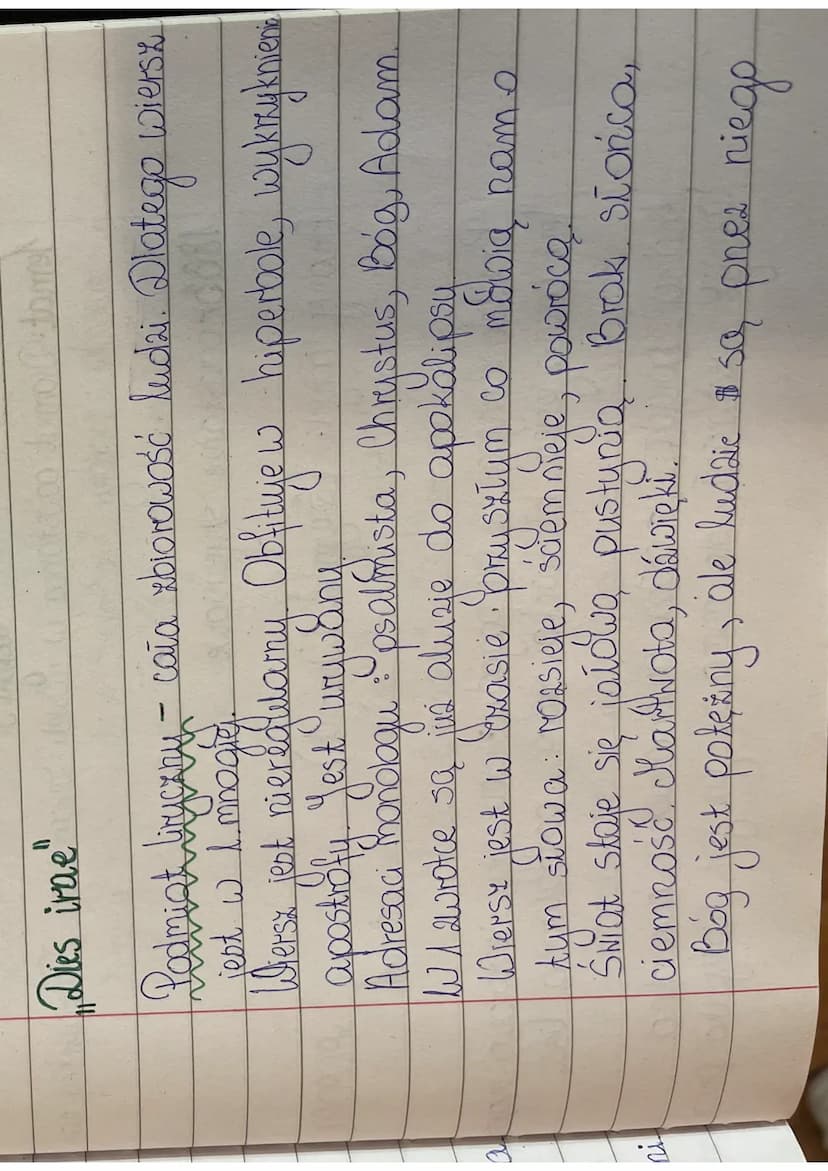 "Dies irae"
Podmiot liryczny - cała zbiorowość ludzi. Dlatego wiersz
jest w l. mnogiej.
Wiersz jest nieregularny. Obfituje w hiperbole, wykrzyknieni
apostrofy. Jest urywany.
Adresaci monologu: psalmista, Chrystus, Bóg, Adam.
W 1 zwrotce są już aluzje do apokalipsy
Wiersz jest w czasie przyszłym co mówią nam o
tym słowa: rozsieje, ściemnieje, powrócą.
Świat staje się jałową pustynią. Brak słońca,
ciemność. Martwota, dźwięki.
Bóg jest potężny, ale ludzie są przez niego
a
ni